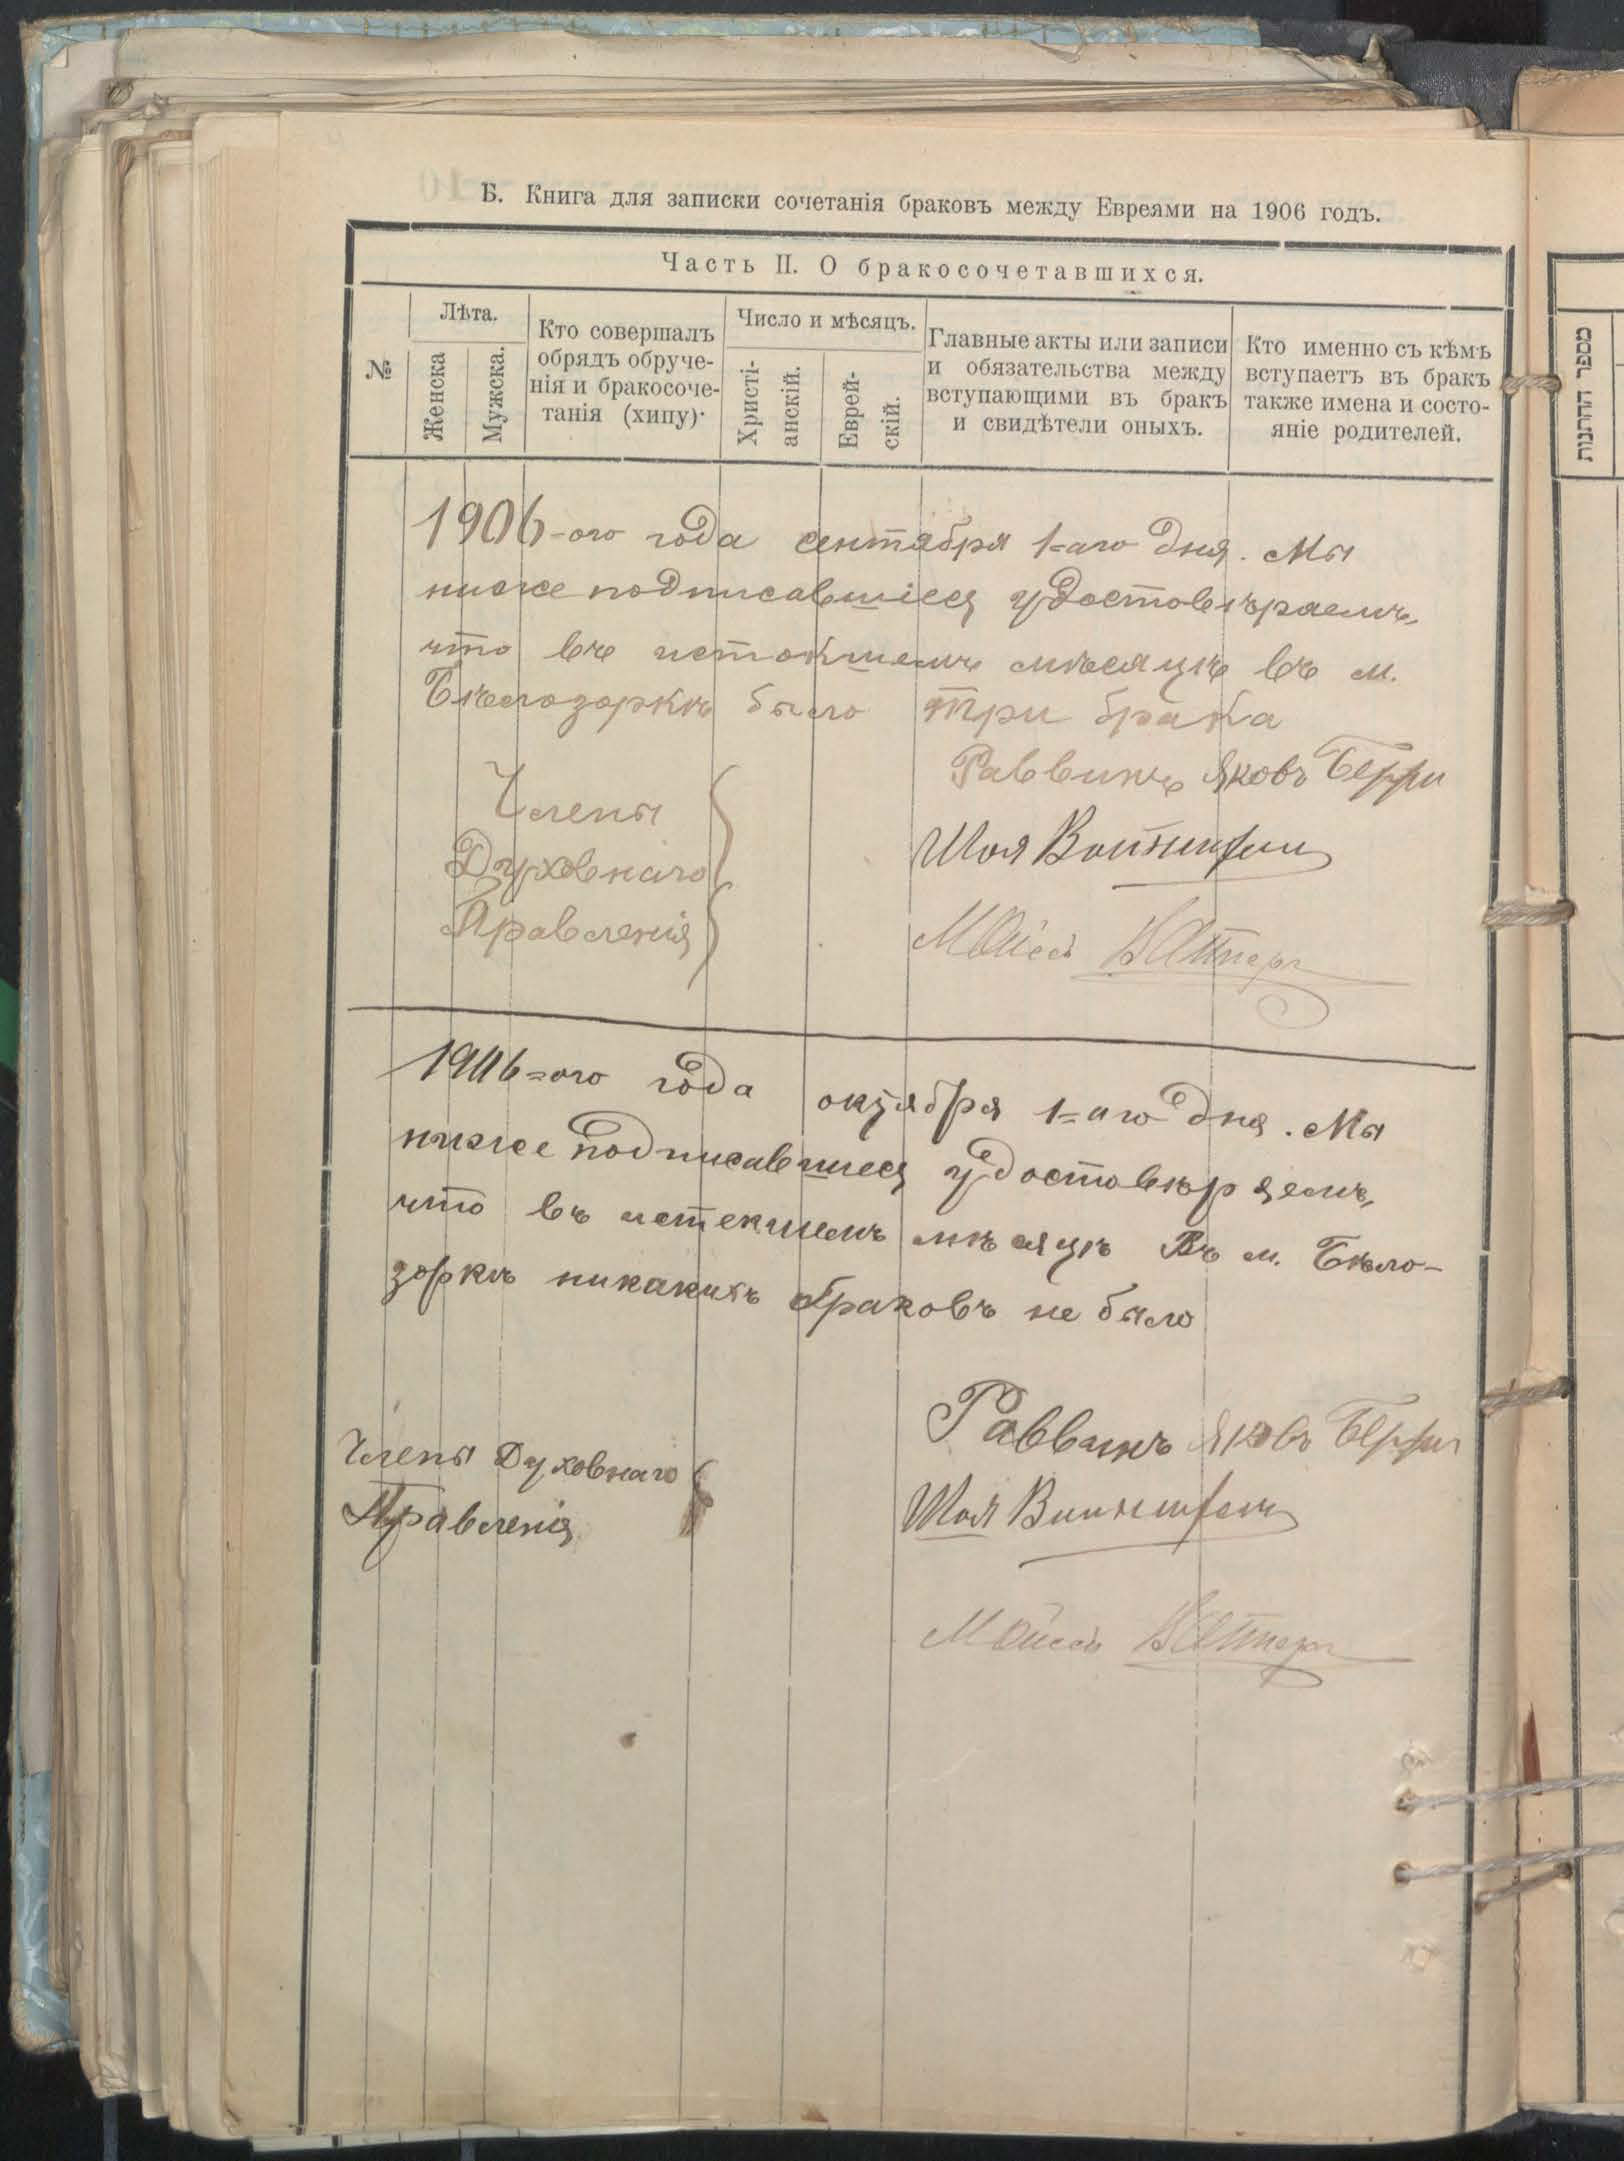 Б. Книга для записки сочетанія браковъ между Евреями на 1906 годъ.
Часть II. О бракосочетавшихся.
№
Лѣта.
Женска
Мужска.
Кто совершалъ
обрядъ обруче-
нія и бракосоче-
танія (хипу)·
Число и мѣсяцъ.
Христі-
анскій.
Еврей-
скій.
Главные акты или записи
и обязательства между
вступающими въ бракъ
и свидѣтели оныхъ.
Кто именно съ кѣмъ
вступаетъ въ бракъ
также имена и состо-
яніе родителей.
מספר החתנות
1906-ого года сентября 1-аго дня. Мы
ниже подписавшіеся удостовѣраемъ,
что въ истокшемъ мѣсяцѣ въ м.
Бѣлозоркѣ было три брака
Раввинъ Яковъ
Члены
Духовнаго
Правленія
Шоя
Мойсей
1906-ого года октября 1-аго дня. Мы
ниже подписавшиеся удостовѣряемъ,
что въ истекшемъ мѣсяцѣ Въ м. Бѣло-
зоркѣ никакихъ браковъ не было
Раввинъ Яковъ
Члены Духовнаго
Правленія
Шоя
Мойсей